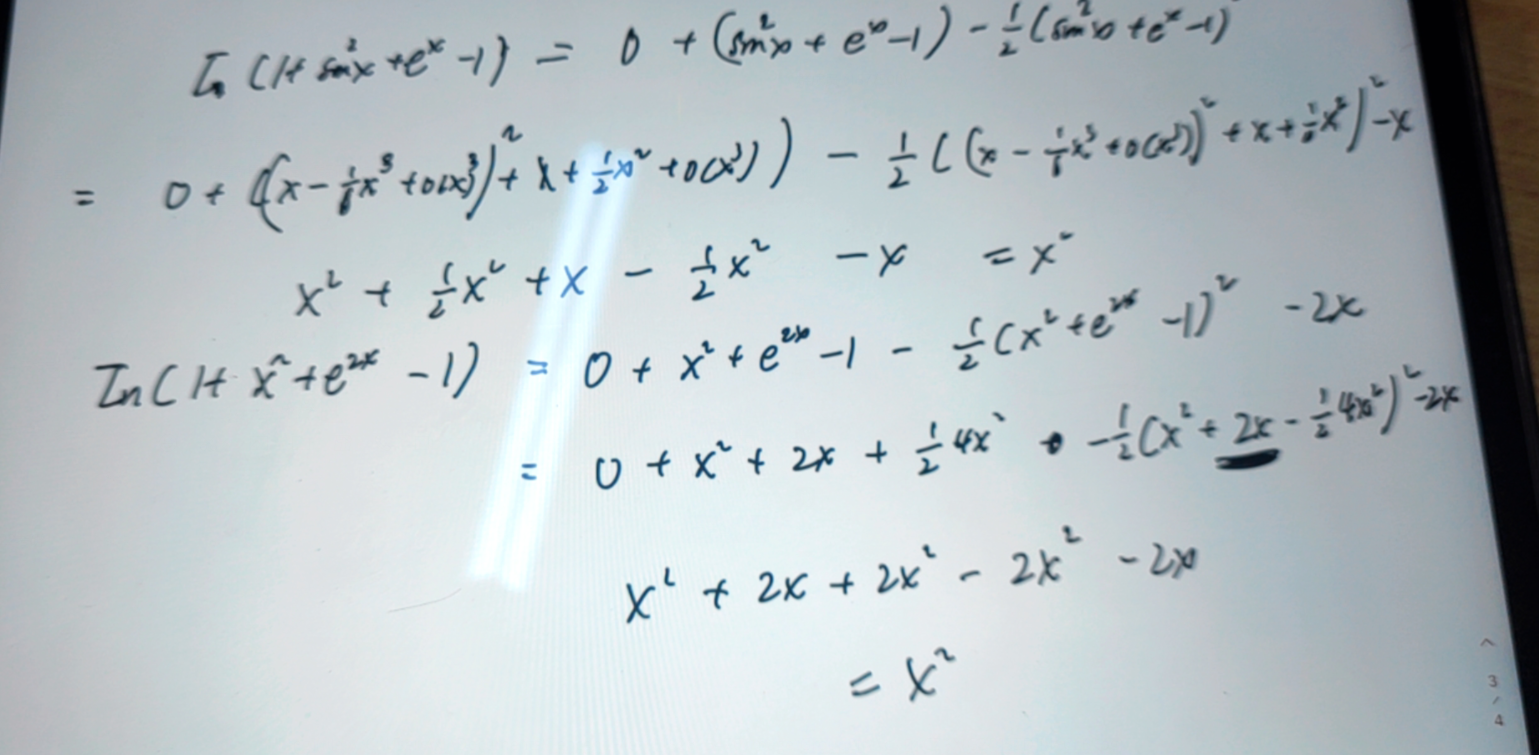 In (1+ sin²x + eˣ -1) = 0 + (sin²x + eˣ -1) - 1/2 (sin²x + eˣ -1)²
= 0 + ((x - 1/6 x³ + o(x³))² + x + 1/2 x² + o(x³)) - 1/2 ((x - 1/6 x³ + o(x³))² + x + 1/2 x²)² - x
x² + 1/2 x² + x - 1/2 x² - x = x²
In (1+ x² + e²ˣ - 1) = 0 + x² + e²ˣ - 1 - 1/2 (x² + e²ˣ - 1)² - 2x
= 0 + x² + 2x + 1/2 4x² - 1/2 (x² + 2x - 1/2 4x²)² - 2x
x² + 2x + 2x² - 2x² - 2x
= x²
3 / 4